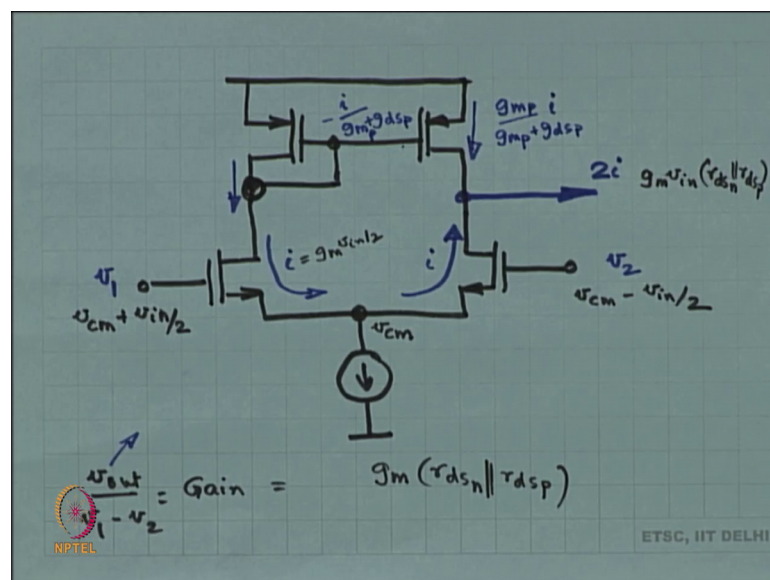 - i / gmp+gdsp
gmp i / gmp+gdsp
2i
gm vin (rdsn||rdsp)
v1
vcm + vin/2
i = gm vin/2
i
v2
vcm - vin/2
vcm
vout / v1 - v2 = Gain = gm (rdsn||rdsp)
NPTEL
ETSC, IIT DELHI